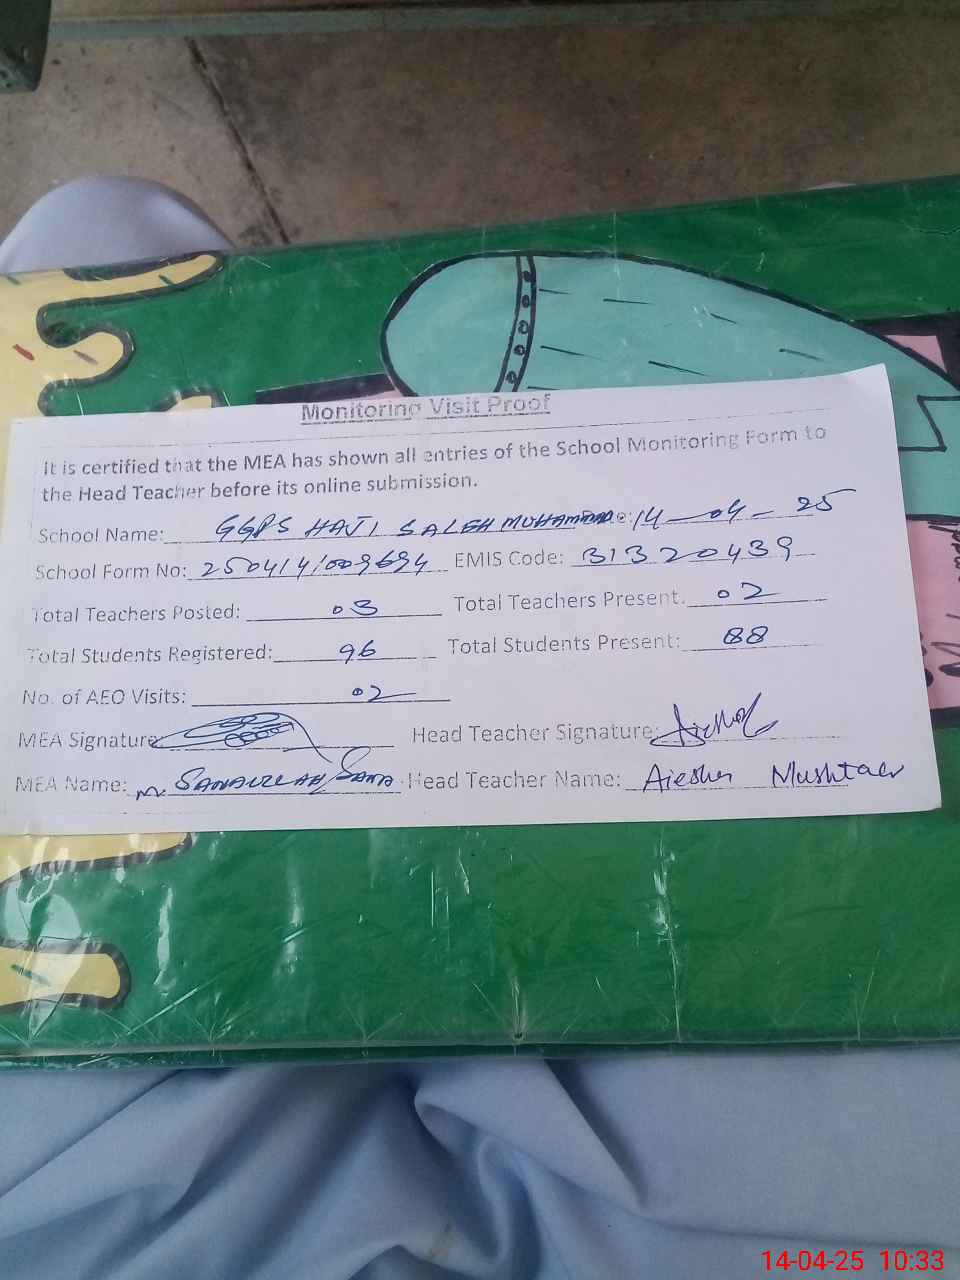 Monitoring Visit Proof
It is certified that the MEA has shown all entries of the School Monitoring Form to
the Head Teacher before its online submission.
School Name: GGPS HAJI SALEH MUHAMMAD e: 14-04-25
School Form No: 250414/009694 EMIS Code: 31320439
Total Teachers Posted: 03 Total Teachers Present: 02
Total Students Registered: 96 Total Students Present: 88
No. of AEO Visits: 02
MEA Signature: Head Teacher Signature:
MEA Name: M. SANAULLAH SANA Head Teacher Name: Aiesha Mushtaq
14-04-25 10:33